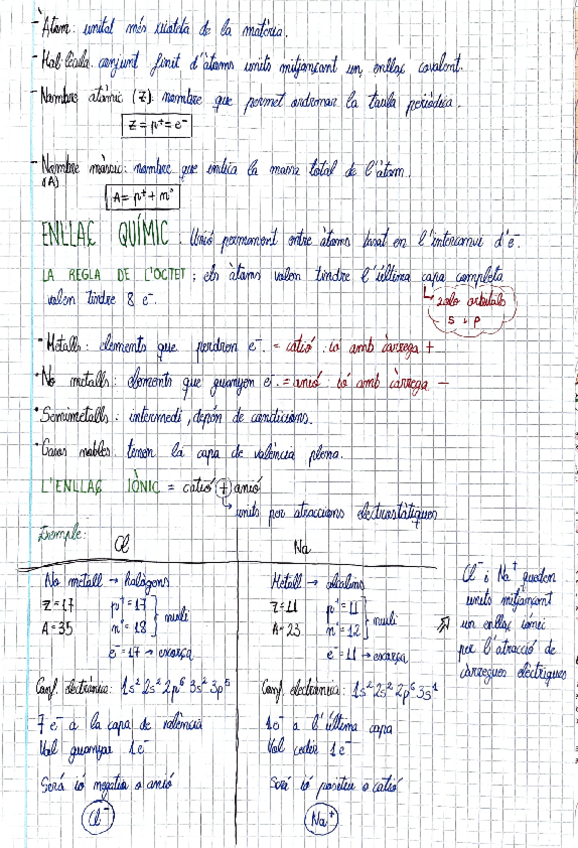 - Àtom: unitat més xicoteta de la matèria.
- Molècula: conjunt finit d'àtoms units mitjançant un enllaç covalent.
- Nombre atòmic (Z): nombre que permet ordenar la taula periòdica.
Z = p⁺ = e⁻
- Nombre màssic: nombre que indica la massa total de l'àtom.
(A)
A = p⁺ + n°
ENLLAÇ QUÍMIC. Unió permanent entre àtoms basat en l'intercanvi d'e⁻.
LA REGLA DE L'OCTET: els àtoms volen tindre l'última capa completa
volen tindre 8 e⁻.
↳ sols orbitals
s i p
· Metalls: elements que perdren e⁻. = catió: ió amb càrrega +
· No metalls: elements que guanyen e⁻. = anió: ió amb càrrega −
· Semimetalls: intermedi, depén de condicions.
· Gasos nobles: tenen la capa de valència plena.
L'ENLLAÇ IÒNIC = catió + anió
↳ units per atraccions electrostàtiques
Exemple:
Cl
No metall → halògens
Z=17 p⁺=17
A=35 n°=18 nucli
e⁻=17 → escorça
Conf. electrònica: 1s² 2s² 2p⁶ 3s² 3p⁵
7 e⁻ a la capa de valència
Vol guanyar 1e⁻
Serà ió negatiu o anió
Cl⁻
Na
Metall → alcalins
Z=11 p⁺=11
A=23 n°=12 nucli
e⁻=11 → escorça
Conf. electrònica: 1s² 2s² 2p⁶ 3s¹
1e⁻ a l'última capa
Vol cedir 1e⁻
Serà ió positiu o catió
Na⁺
Cl⁻ i Na⁺ queden
units mitjançant
un enllaç iònic
per l'atracció de
càrregues elèctriques